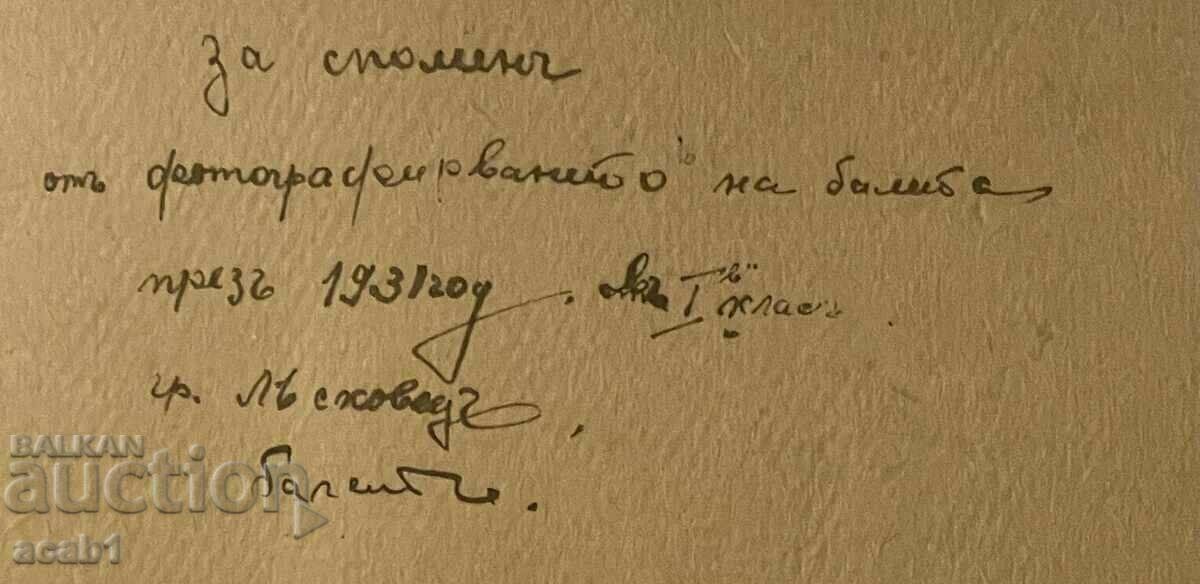 За споменъ
отъ фотографирванйто на балита
презъ 1931 год. I "в" класъ.
гр. Лѣсковецъ,
BALKAN
auction
acab1